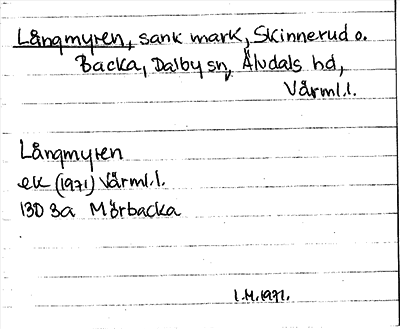 Långmyren, sank mark, Skinnerud o.
Backa, Dalby sn, Älvdals hd,
Värml.l.
Långmyren
ek (1971) Värml.l.
13D 3a Mörbacka
I.M.1971.